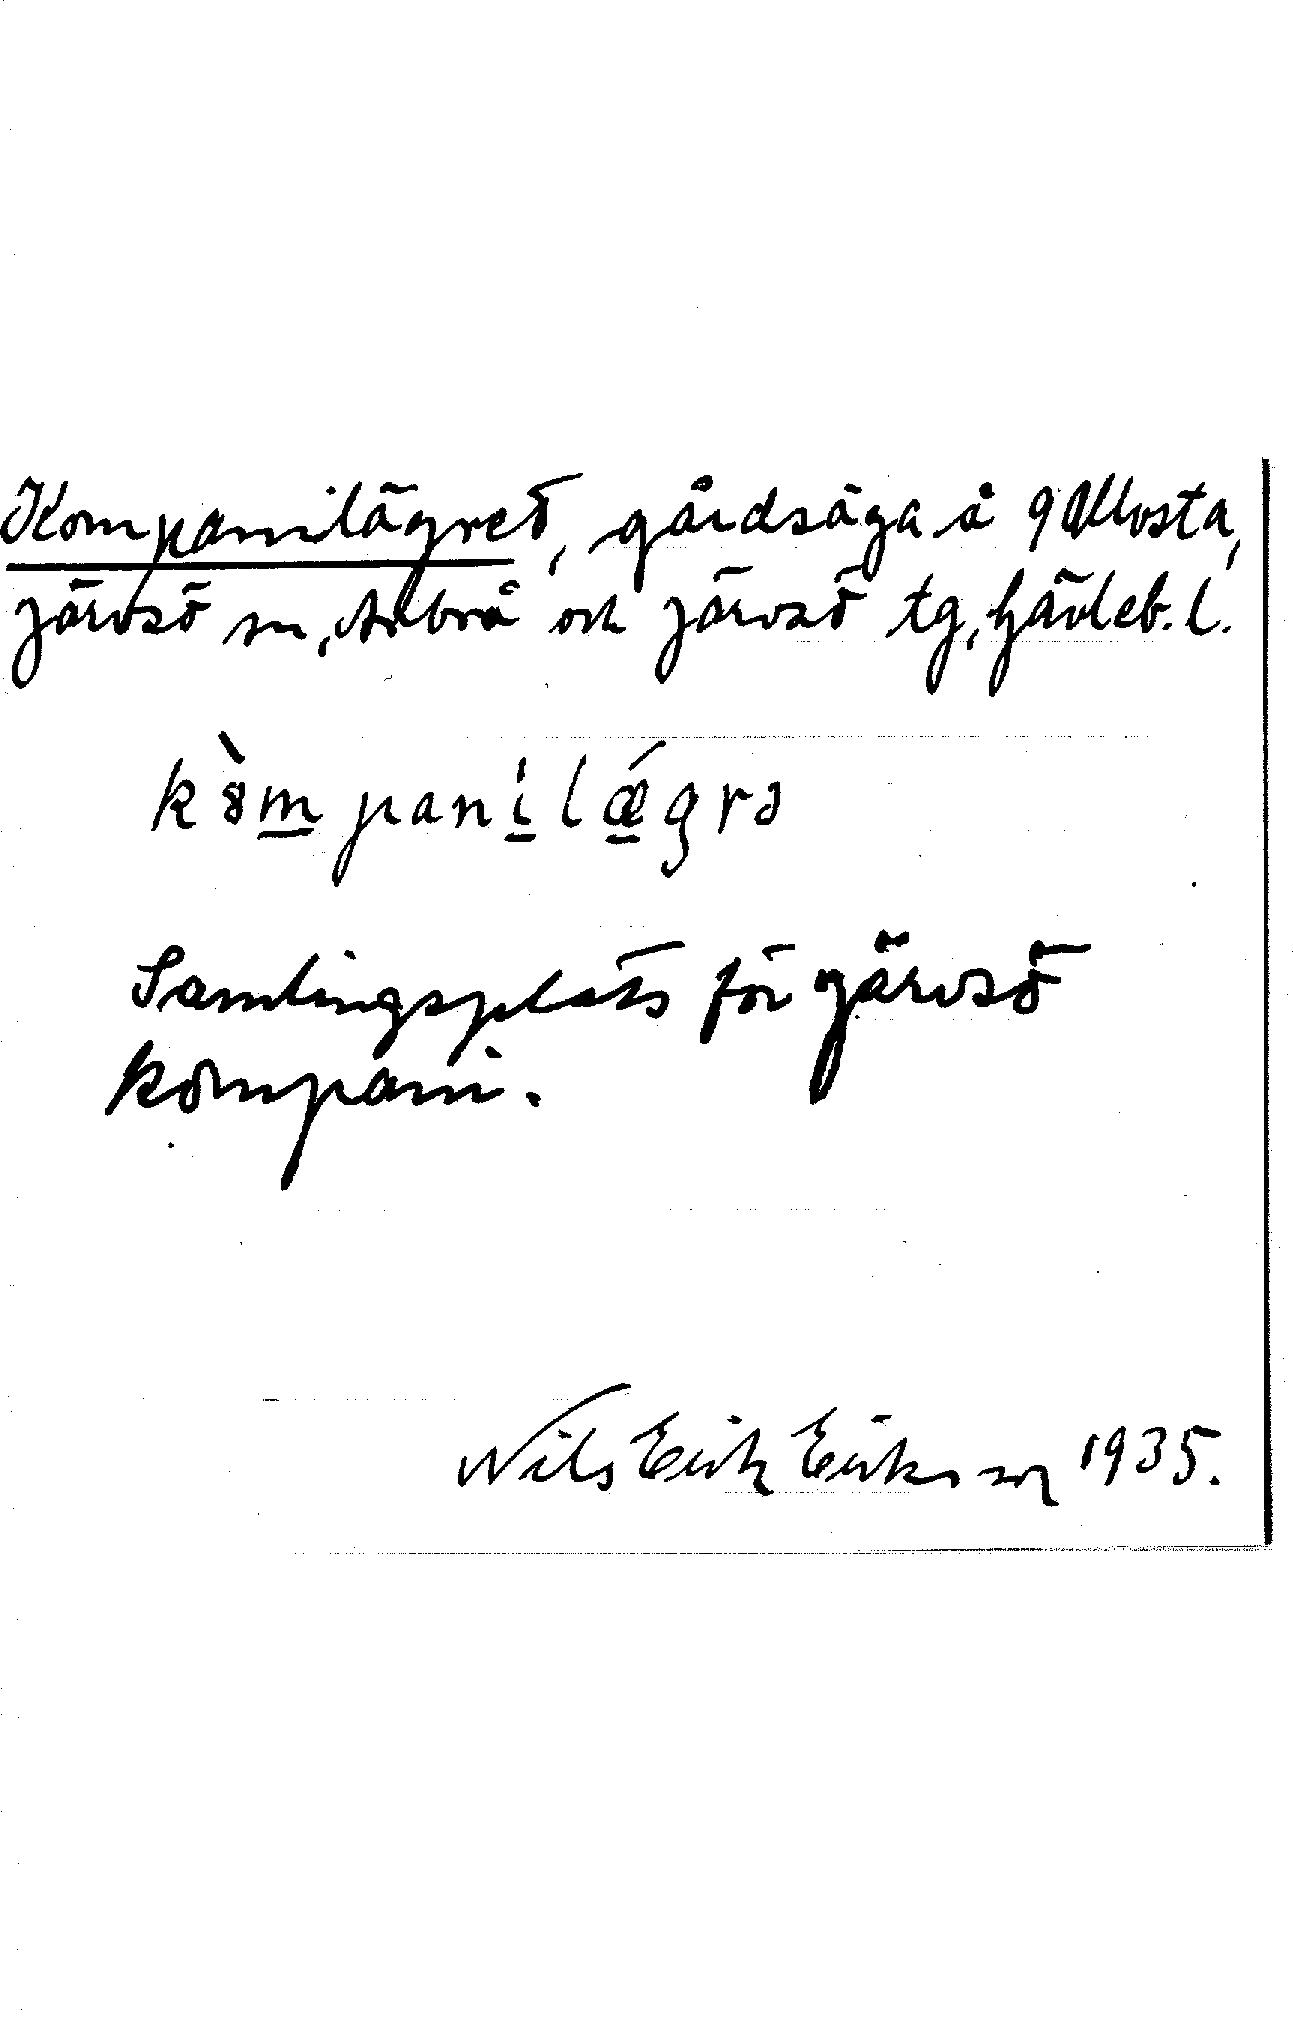 Kompanilägret, gårdsäga å 9 Ullvsta,
Järvsö sn, Arbrå och Järvsö tg, Gävleb. l.
kȍm panílǽgrə
Samlingsplats för Järvsö
kompani.
Nils Erik Eriksson 1935.